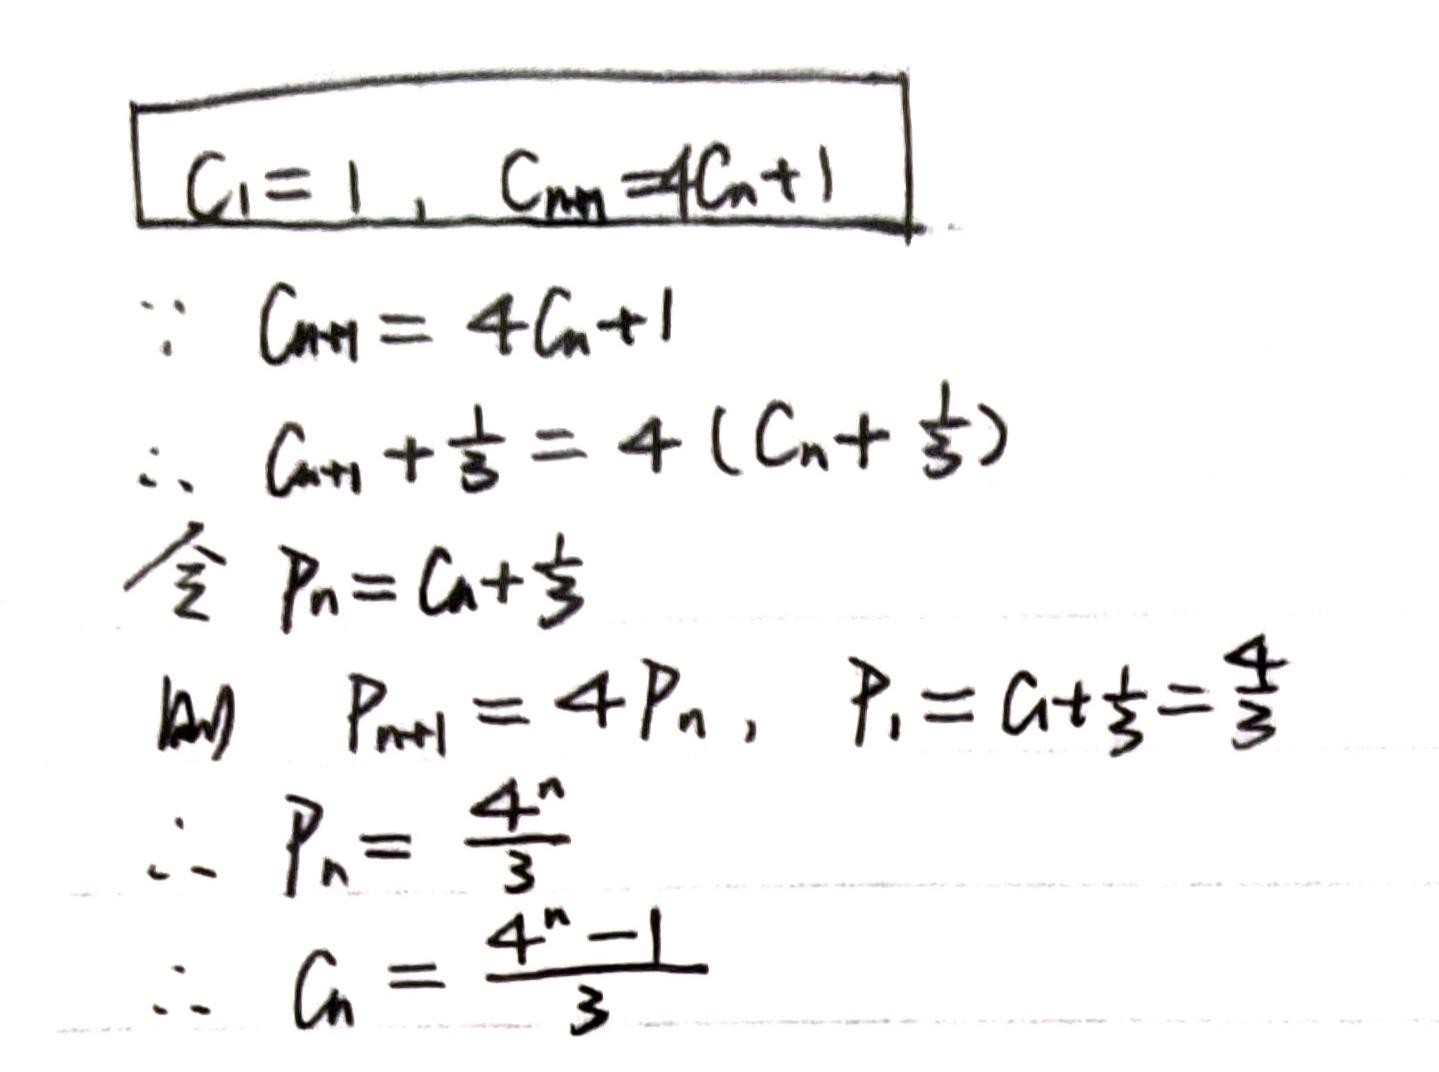 C₁=1, Cₙ₊₁=4Cₙ+1
∵ Cₙ₊₁=4Cₙ+1
∴ Cₙ₊₁+1/3=4(Cₙ+1/3)
令 Pₙ=Cₙ+1/3
则 Pₙ₊₁=4Pₙ, P₁=C₁+1/3=4/3
∴ Pₙ=4ⁿ/3
∴ Cₙ=(4ⁿ-1)/3